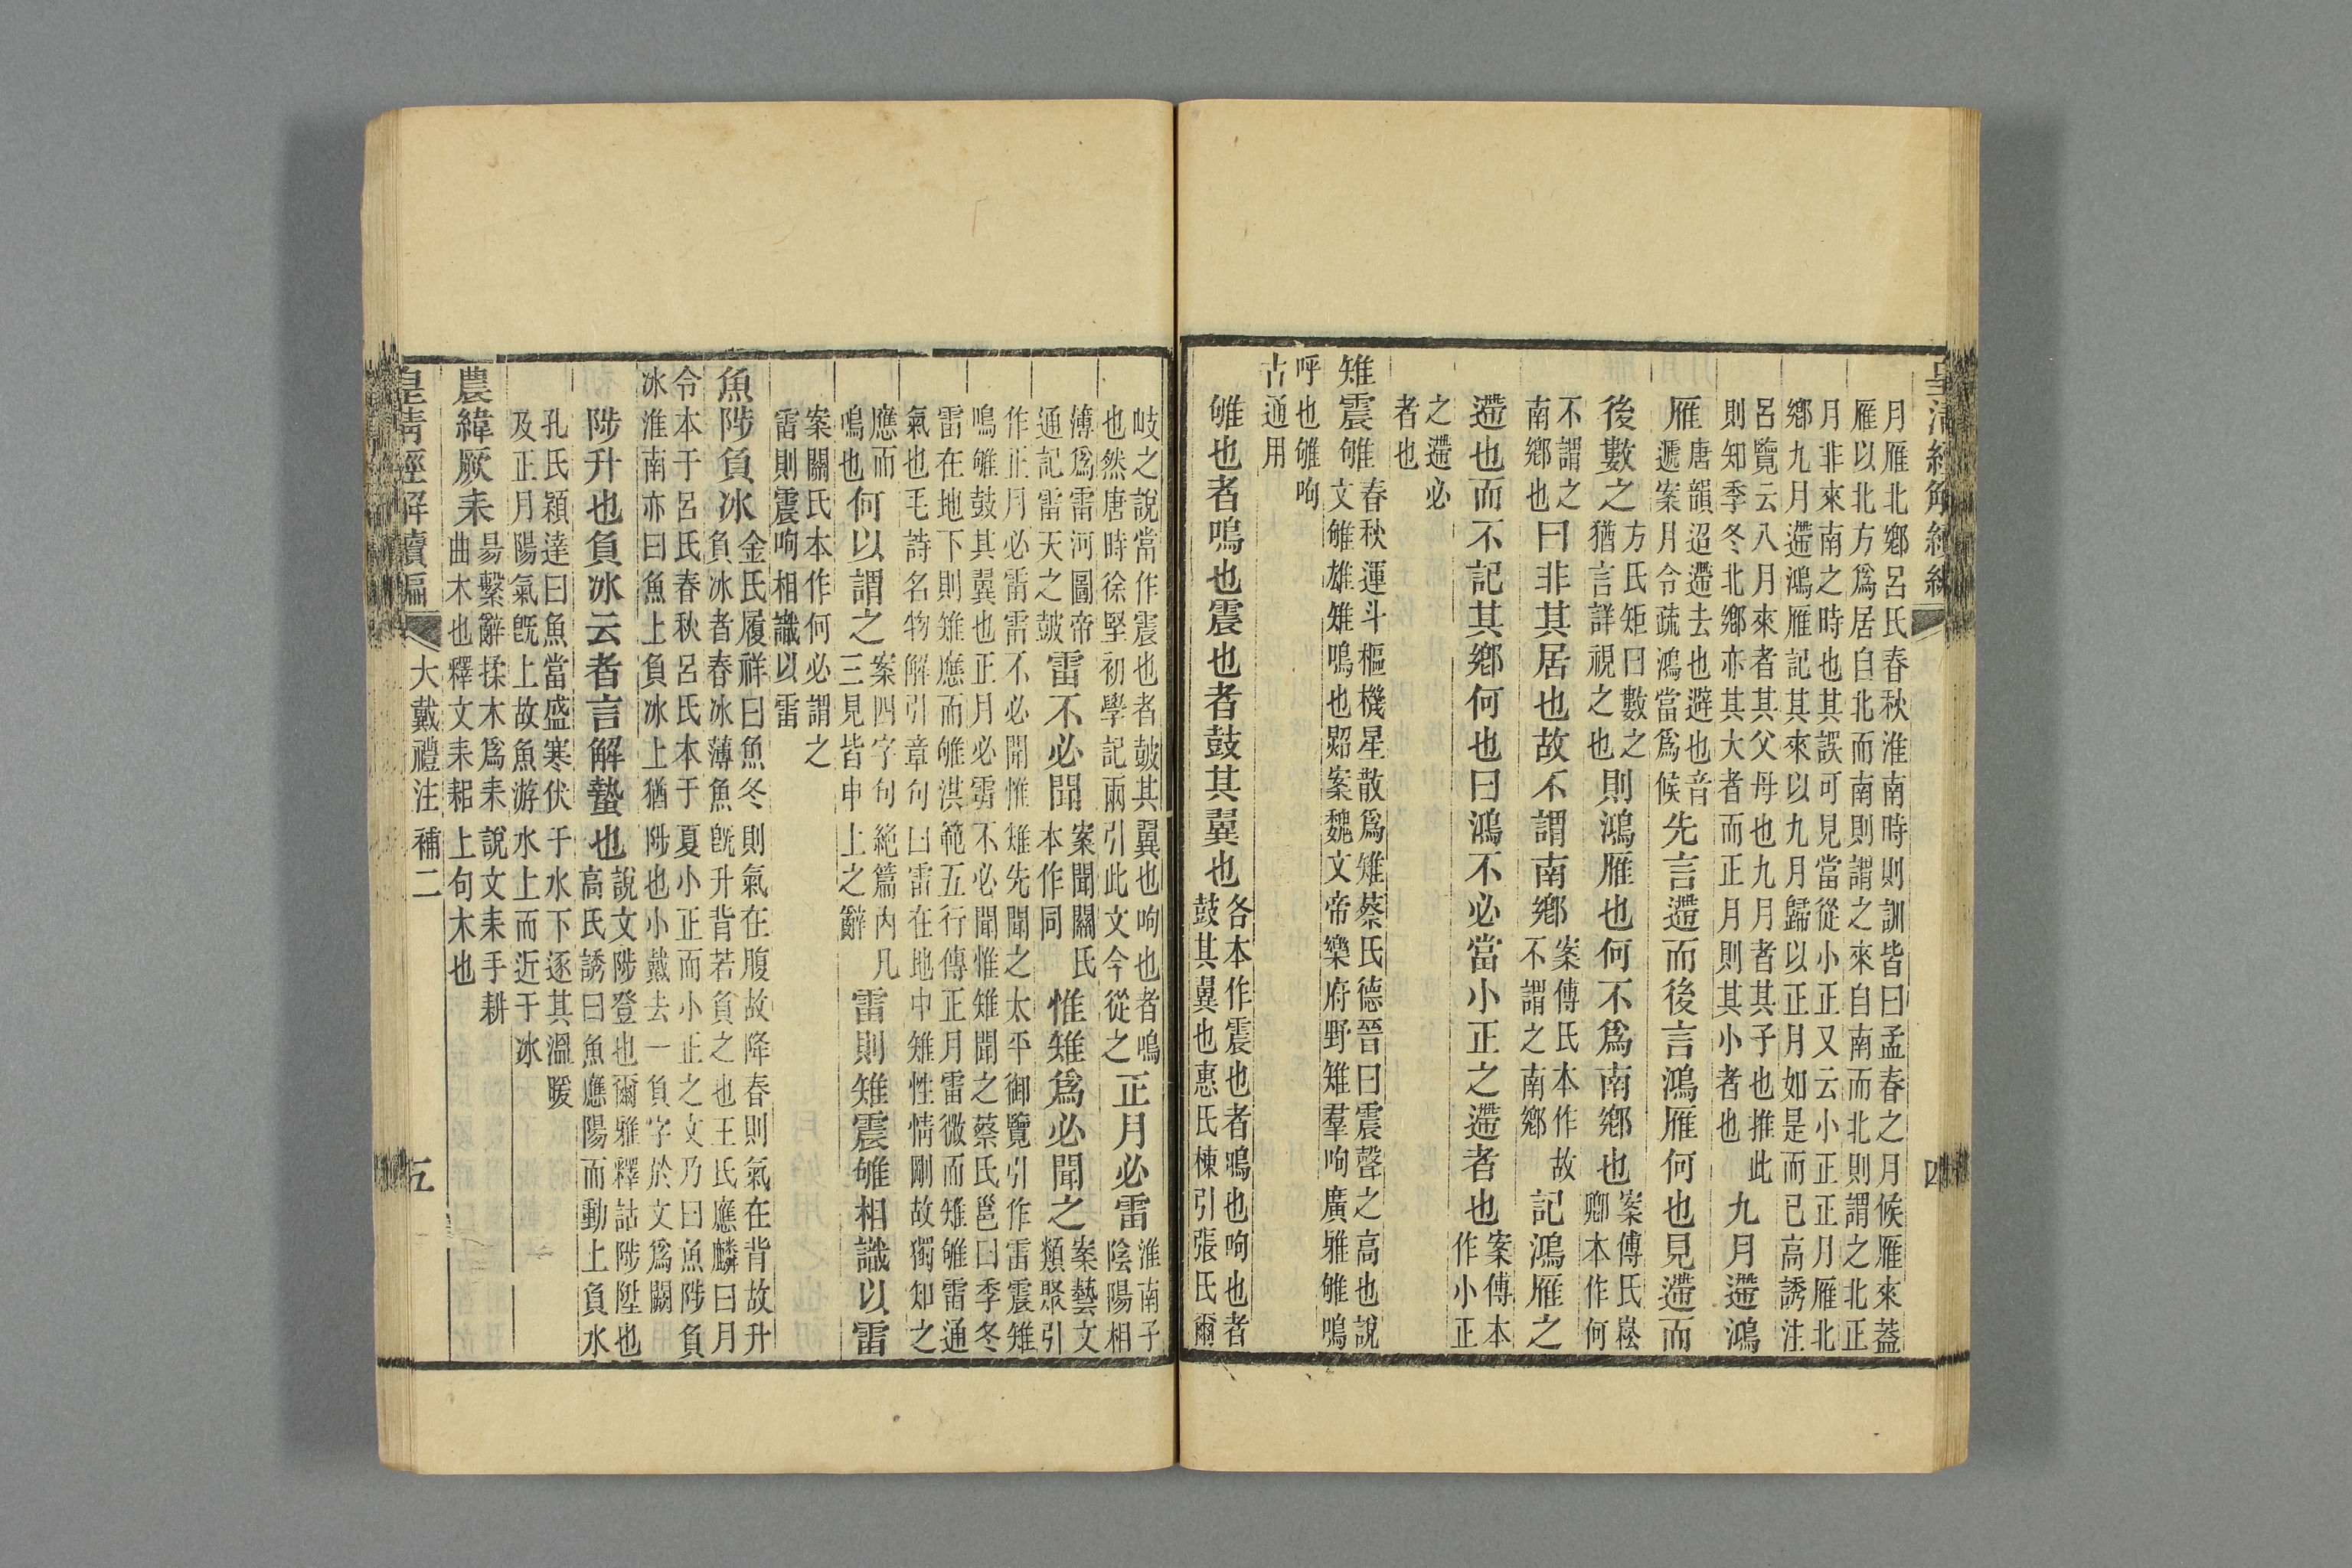 皇清經解續編
四
月雁北鄉呂氏春秋淮南時則訓皆曰孟春之月候雁來蓋
雁以北方爲居自北而南則謂之來自南而北則謂之北正
月非來南之時也其誤可見當從小正又云小正正月雁北
鄉九月遰鴻雁記其來以九月歸以正月如是而已高誘注
呂覽云八月來者其父母也九月者其子也推此
則知季冬北鄉亦其大者而正月則其小者也
九月遰鴻
雁
唐韻迢遰去也避也音
遞案月令疏鴻當爲候
先言遰而後言鴻雁何也見遰而
後數之
方氏矩曰數之
猶言詳視之也
則鴻雁也何不爲南鄉也
案傅氏崧
卿本作何
不謂之
南鄉也
曰非其居也故不謂南鄉
案傅氏本作故
不謂之南鄉
記鴻雁之
遰也而不記其鄉何也曰鴻不必當小正之遰者也
案傅本
作小正
之遰必
者也
雉震雊
春秋運斗樞機星散爲雉蔡氏德晉曰震聲之高也說
文雊雄雉鳴也
案魏文帝樂府野雉羣呴廣雅雊鳴
呼也雊呴
古通用
雊也者鳴也震也者鼓其翼也
各本作震也者鳴也呴也者
鼓其翼也惠氏棟引張氏爾
岐之說當作震也者鼓其翼也呴也者鳴
也然唐時徐堅初學記兩引此文今從之
正月必雷
淮南子
陰陽相
薄爲雷河圖帝
通記雷天之鼓
雷不必聞
案聞關氏
本作同
惟雉爲必聞之
案藝文
類聚引
作正月必雷雷不必聞惟雉先聞之太平御覽引作雷震雉
鳴雊鼓其翼也正月必雷不必聞惟雉聞之蔡氏邕曰季冬
雷在地下則雉應而雊洪範五行傳正月雷微而雉雊雷通
氣也毛詩名物解引章句曰雷在地中雉性情剛故獨知之
應而
鳴也
何以謂之
案四字句絕篇內凡
三見皆申上之辭
雷則雉震雊相識以雷
案關氏本作何必謂之
雷則震呴相識以雷
魚陟負冰
金氏履祥曰魚冬則氣在腹故降春則氣在背故升
負冰者春冰薄魚旣升背若負之也王氏應麟曰月
令本于呂氏春秋呂氏本于夏小正而小正之文乃曰魚陟負
冰淮南亦曰魚上負冰上猶陟也小戴去一負字於文爲闕
陟升也負冰云者言解蟄也
說文陟登也爾雅釋詁陟陞也
高氏誘曰魚應陽而動上負冰
孔氏穎達曰魚當盛寒伏于水下逐其溫暖
及正月陽氣旣上故魚游水上而近于冰
農緯厥耒
昜繫辭揉木爲耒說文耒手耕
曲木也釋文耒耜上句木也
皇清經解續編
大戴禮注補二
五